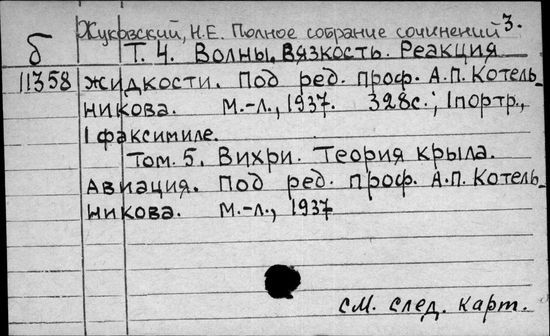 Жуковский, Н.Е. Полное собрание сочинений 3.
б Т. 4. Волны. Вязкость. Реакция
11358 жидкости. Под ред. проф. А.П. Котель-
никова. М.-Л., 1937. 328с.; 1портр.,
1 факсимиле.
Том. 5. Вихри. Теория крыла.
Авиация. Под ред. проф. А.П. Котель-
никова. М.-Л., 1937
см. след. карт.